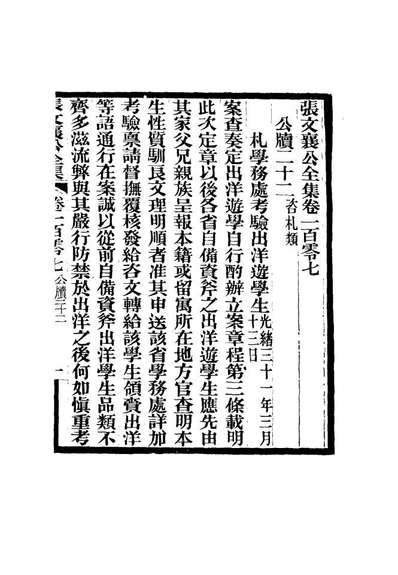 張文襄公全集卷一百零七
公牘二十二咨札類
札學務處考驗出洋遊學生光緒三十一年三月十三日
案查奏定出洋遊學自行酌辦立案章程第三條載明
此次定章以後各省自備資斧之出洋遊學生應先由
其家父兄親族呈報本籍或留寓所在地方官查明本
生性質馴良文理明順者准其申送該省學務處詳加
考驗禀請督撫覆核發給咨文轉給該學生領賫出洋
等語通行在案誠以從前自備資斧出洋學生品類不
齊多滋流弊與其嚴行防禁於出洋之後何如慎重考
張文襄公全集
卷一百零七
公牘二十二
一